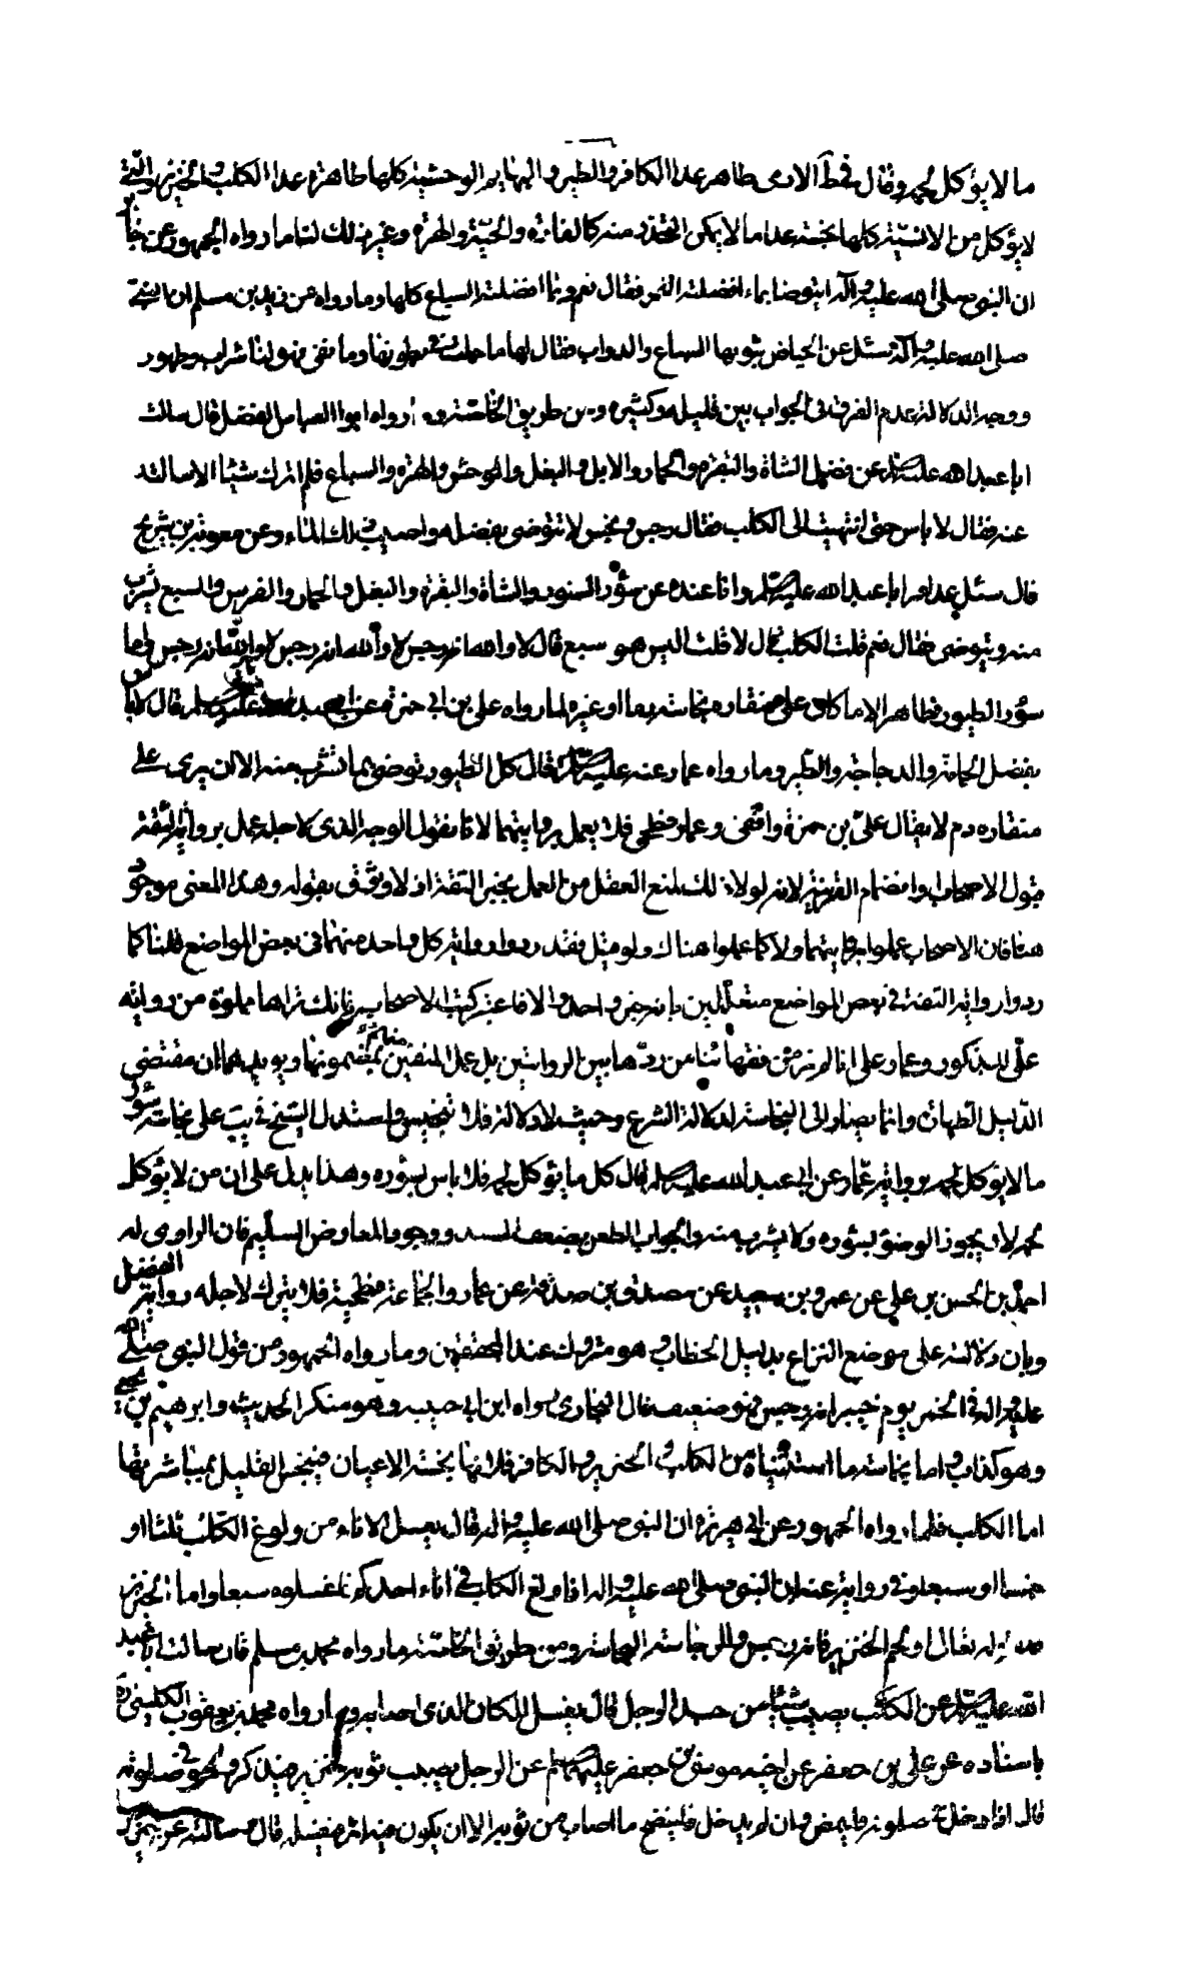 ما لا يؤكل لحمه وقال في ط الادمى طاهر عدا الكافر والطير والبهايم الوحشية كلها طاهرة عدا الكلب والخنزير والتي
لا يؤكل من الانسيّة كلها نجسة عدا ما لا يمكن التحرز منه كالفارة والحيّة والهرة وغير ذلك لنا ما رواه الجمهور عن جابر
ان النبي صلى الله عليه وآله ايتوضا بماء افضلته الحمر فقال نعم وبما افضلته السباع كلها وما رواه عن زيد بن مسلم ان النبي
صلى الله عليه وآله سئل عن الحياض ينوبها السباع والدواب فقال لها ما حملت في بطونها وما بقى فهو لنا شراب وطهور
ووجه الدلالة عدم الفرق في الجواب بين قليله وكثيره ومن طريق الخاصّة ما رواه ابو العباس الفضل قال سالت
ابا عبد الله عليه السلام عن فضل الشاة والبقرة والحمار والابل والبغل والوحش والهرة والسباع فلم اترك شيئا الا سالته
عنه فقال لا باس حتى انتهيت الى الكلب فقال رجس نجس لا تتوضى بفضله واصبب ذلك الماء وعن معوية بن شريح
قال سئل عذافر ابا عبد الله عليه السلام وانا عنده عن سؤر السنور والشاة والبقرة والبغل والحمار والفرس والسبع يشرب
منه ويتوضى فقال نعم قلت الكلب قال لا قلت اليس هو سبع قال لا والله انه رجس لا والله انه رجس لا والله انه رجس واما
سؤر الطيور فطاهر الا ما كان على منقاره نجاسة دما او غيره لما رواه علي بن ابي حمزة عن ابي عبد الله عليه السلام قال لا باس
بفضل الحمامة والدجاجة والطير وما رواه عمار عنه عليه السلام قال كل الطيور توضى مما تشرب منه الا ان يرى على
منقاره دم لا يقال عليّ بن حمزة واقفى وعمار فطحى فلا يعمل بروايتهما لانا نقول الوجه الذى لاجله عمل برواية الثقة
قبول الاصحاب وانضمام القرينة لانه لولا ذلك لمنع العقل من العمل بخبر الثقة اذ لا وثوق بقوله وهذا المعنى موجود
هنا فان الاصحاب عملوا بروايتهما ولا كما عملوا هناك ولو قيل فقد ردوا رواية كل واحد منهما في بعض المواضع قلنا كما
ردوا رواية الثقة في بعض المواضع متعللين بانه خبر واحد والا فاعتبر كتب الاصحاب فانك تراها مملوة من رواية
علي المذكور وعمار على انا لم نر من فقهائنا من ردّ هاتين الروايتين بل عمل المفتين منهم بمضمونها ويؤيدهما ان مقتضى
الدليل الطهارة وانما يصار الى النجاسة لدلالة الشرع وحيث لا دلالة فلا تنجيس واستدل الشيخ في يب على نجاسة سؤر
ما لا يؤكل لحمه برواية عمّار عن ابي عبد الله عليه السلام قال كل ما يؤكل لحمه فلا باس بسؤره وهذا يدل على ان من لا يؤكل
لحمه لا يجوز الوضوء بسؤره ولا يشرب منه والجواب الطعن بضعف السند ووجود المعارض السليم فان الراوى له
احمد بن الحسن بن علي عن عمرو بن سعيد عن مصدق بن صدقة عن عمار والجماعة فطحية فلا يترك لاجله رواية الفضل
وبان دلالته على موضع النزاع بدليل الخطاب وهو متروك عند المحققين وما رواه الجمهور من قول النبي صلى الله
عليه واله في الحمر يوم خيبر انه رجس فهو ضعيف قال البخاري رواه ابن ابي حبيبه وهو منكر الحديث وابرهيم بن يحيى
وهو كذاب واما نجاسة ما استثنيناه من الكلب والخنزير والكافر فلانها نجسة الاعيان فينجس القليل بمباشرتها
اما الكلب فلما رواه الجمهور عن ابي هريرة ان النبي صلى الله عليه واله قال يغسل الاناء من ولوغ الكلب ثلثا او
خمسا او سبعا وفي رواية عنه ان النبي صلى الله عليه واله اذا ولغ الكلب في اناء احدكم فاغسلوه سبعا واما الخنزير
قوله تعالى او لحم الخنزير فانه رجس ومن طريق الخاصّة ما رواه محمد بن مسلم قال سالت ابا عبد
الله عليه السلام عن الكلب يصيب شيئا من جسد الرجل قال يغسل المكان الذى اصابه وما رواه محمد بن يعقوب الكليني ره
باسناده عن علي بن جعفر عن اخيه موسى بن جعفر عليهما السلام عن الرجل يصيب ثوبه خنزير فيذكر وهو في صلوته
قال اذا دخل في صلوته فليمض وان لم يدخل فلينضح ما اصاب من ثوبه الا ان يكون فيه اثر فيغسله قال وسالته عن خنزير